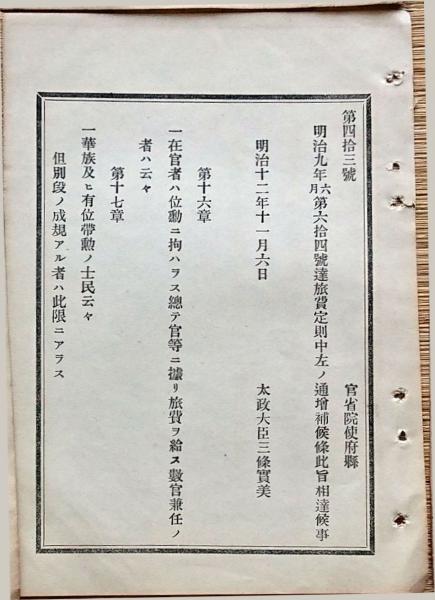 第四拾三號
官省院使府縣
明治九年六月第六拾四號達旅費定則中左ノ通增補候條此旨相達候事
明治十二年十一月六日
太政大臣三條實美
第十六章
一在官者ハ位勳ニ拘ハラス總テ官等ニ據リ旅費ヲ給ス數官兼任ノ
者ハ云々
第十七章
一華族及ヒ有位帶勳ノ士民云々
但別段ノ成規アル者ハ此限ニアラス